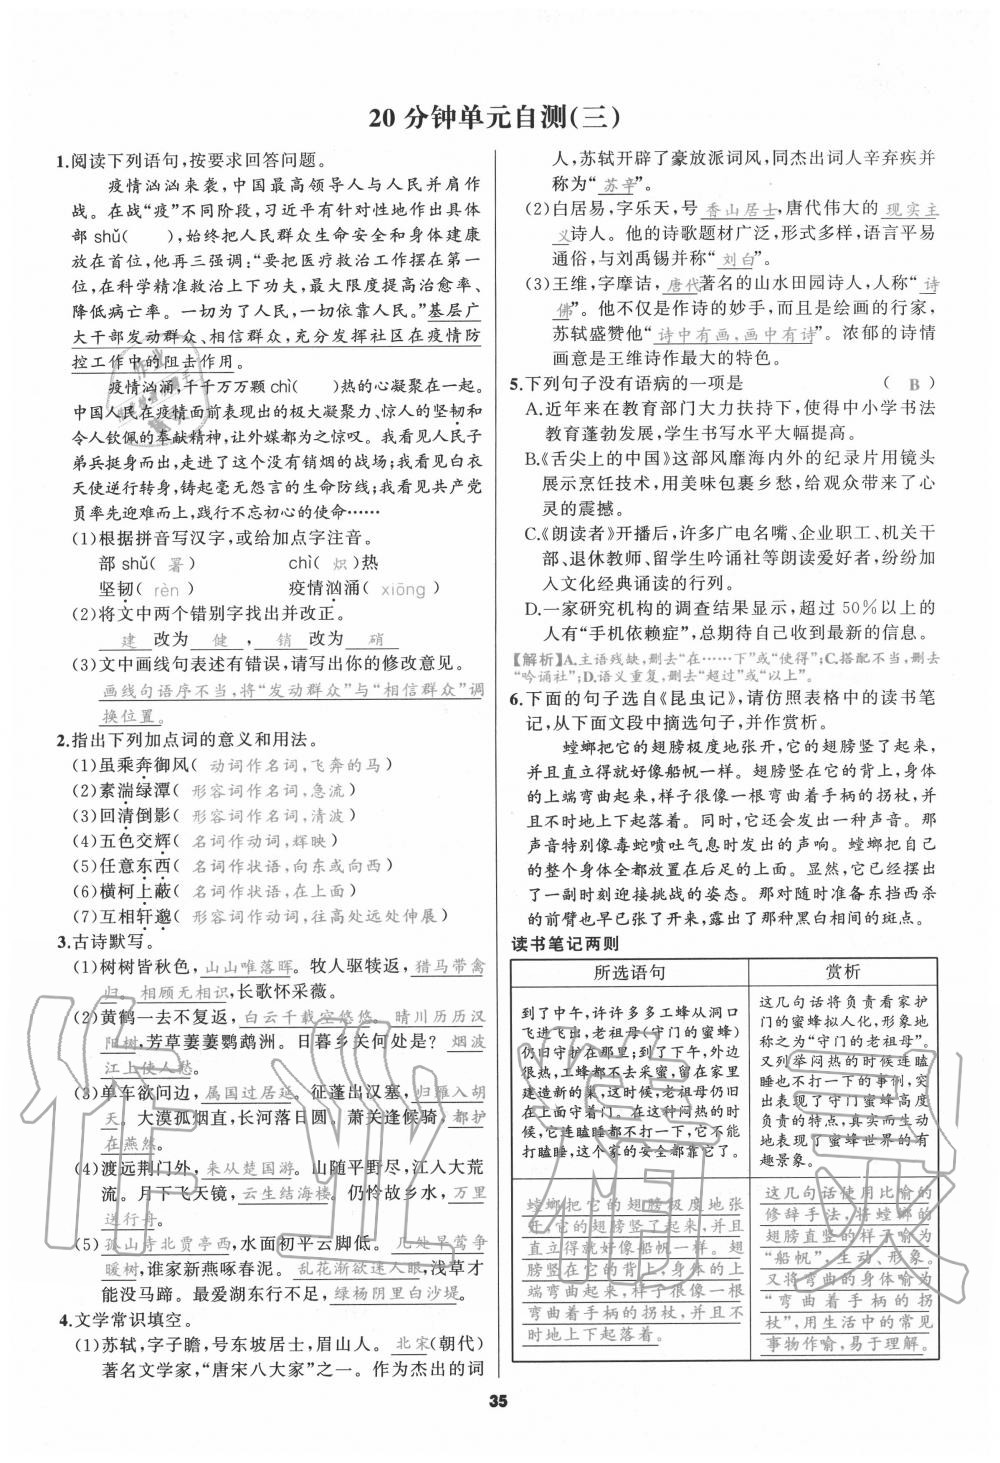 20 分钟单元自测(三)
1.阅读下列语句,按要求回答问题。
疫情汹汹来袭,中国最高领导人与人民并肩作
战。在战“疫”不同阶段,习近平有针对性地作出具体
部 shǔ(　　),始终把人民群众生命安全和身体建康
放在首位,他再三强调:“要把医疗救治工作摆在第一
位,在科学精准救治上下功夫,最大限度提高治愈率、
降低病亡率。一切为了人民、一切依靠人民。”基层广
大干部发动群众、相信群众,充分发挥社区在疫情防
控工作中的阻击作用。
疫情汹涌,千千万万颗 chì(　　)热的心凝聚在一起。
中国人民在疫情面前表现出的极大凝聚力、惊人的坚韧和
令人钦佩的奉献精神,让外媒都为之惊叹。我看见人民子
弟兵挺身而出,走进了这个没有销烟的战场;我看见白衣
天使逆行转身,铸起毫无怨言的生命防线;我看见共产党
员率先迎难而上,践行不忘初心的使命……
(1)根据拼音写汉字,或给加点字注音。
部 shǔ( 署 )　　chì( 炽 )热
坚韧( rèn )　　疫情汹涌( xiōng )
(2)将文中两个错别字找出并改正。
建 改为 健 , 销 改为 硝
(3)文中画线句表述有错误,请写出你的修改意见。
画线句语序不当,将“发动群众”与“相信群众”调
换位置。
2.指出下列加点词的意义和用法。
(1)虽乘奔御风( 动词作名词,飞奔的马 )
(2)素湍绿潭( 形容词作名词,急流 )
(3)回清倒影( 形容词作名词,清波 )
(4)五色交辉( 名词作动词,辉映 )
(5)任意东西( 名词作状语,向东或向西 )
(6)横柯上蔽( 名词作状语,在上面 )
(7)互相轩邈( 形容词作动词,往高处远处伸展 )
3.古诗默写。
(1)树树皆秋色,山山唯落晖。牧人驱犊返,猎马带禽
归。相顾无相识,长歌怀采薇。
(2)黄鹤一去不复返,白云千载空悠悠。晴川历历汉
阳树,芳草萋萋鹦鹉洲。日暮乡关何处是?烟波
江上使人愁。
(3)单车欲问边,属国过居延。征蓬出汉塞,归雁入胡
天。大漠孤烟直,长河落日圆。萧关逢候骑,都护
在燕然。
(4)渡远荆门外,来从楚国游。山随平野尽,江入大荒
流。月下飞天镜,云生结海楼。仍怜故乡水,万里
送行舟。
(5)孤山寺北贾亭西,水面初平云脚低。几处早莺争
暖树,谁家新燕啄春泥。乱花渐欲迷人眼,浅草才
能没马蹄。最爱湖东行不足,绿杨阴里白沙堤。
4.文学常识填空。
(1)苏轼,字子瞻,号东坡居士,眉山人。北宋(朝代)
著名文学家,“唐宋八大家”之一。作为杰出的词
人,苏轼开辟了豪放派词风,同杰出词人辛弃疾并
称为“苏辛”。
(2)白居易,字乐天,号 香山居士,唐代伟大的 现实主
义诗人。他的诗歌题材广泛,形式多样,语言平易
通俗,与刘禹锡并称“刘白”。
(3)王维,字摩诘,唐代著名的山水田园诗人,人称“诗
佛”。他不仅是作诗的妙手,而且是绘画的行家,
苏轼盛赞他“诗中有画,画中有诗”。浓郁的诗情
画意是王维诗作最大的特色。
5.下列句子没有语病的一项是　　( B )
A.近年来在教育部门大力扶持下,使得中小学书法
教育蓬勃发展,学生书写水平大幅提高。
B.《舌尖上的中国》这部风靡海内外的纪录片用镜头
展示烹饪技术,用美味包裹乡愁,给观众带来了心
灵的震撼。
C.《朗读者》开播后,许多广电名嘴、企业职工、机关干
部、退休教师、留学生吟诵社等朗读爱好者,纷纷加
入文化经典诵读的行列。
D.一家研究机构的调查结果显示,超过 50%以上的
人有“手机依赖症”,总期待自己收到最新的信息。
【解析】A.主语残缺,删去“在……下”或“使得”;C.搭配不当,删去
“吟诵社”;D.语义重复,删去“超过”或“以上”。
6.下面的句子选自《昆虫记》,请仿照表格中的读书笔
记,从下面文段中摘选句子,并作赏析。
螳螂把它的翅膀极度地张开,它的翅膀竖了起来,
并且直立得就好像船帆一样。翅膀竖在它的身体
的上端弯曲起来,样子很像一根弯曲着手柄的拐杖,并
且不时地上下起落着。同时,它还会发出一种声音。那
声音特别像毒蛇喷吐气息时发出的声响。螳螂把自己
的整个身体全都放置在后足的上面。显然,它已经摆出
了一副时刻迎接挑战的姿态。那对随时准备东挡西杀
的前臂也早已张了开来,露出了那种黑白相间的斑点。
读书笔记两则
所选语句　赏析
到了中午,许许多多工蜂从洞口
飞进飞出,老祖母(守门的蜜蜂)
仍旧守护在那里;到了下午,外边
很热,工蜂都不去采蜜,留在家里
建造新的巢,这时候,老祖母仍旧
在上面守着门。在这种闷热的时
候,它连瞌睡都不打一下,它不能
打瞌睡,这个家的安全都靠它了。
这几句话将负责看家护
门的蜜蜂拟人化,形象地
称之为“守门的老祖母”。
又列举闷热的时候连瞌
睡也不打一下的事例,突
出表现了守门蜜蜂高度
负责的特点,真实而生动
地表现了蜜蜂世界的有
趣景象。
螳螂把它的翅膀极度地张
开,它的翅膀竖了起来,并且
直立得就好像船帆一样。翅
膀竖在它的身体的上端
弯曲起来,样子很像一根
弯曲着手柄的拐杖,并且不
时地上下起落着。
这几句话使用比喻的
修辞手法,将螳螂的
翅膀直竖的样子喻为
“船帆”,生动、形象。
又将弯曲的身体喻为
“弯曲着手柄的拐
杖”,用生活中的常见
事物作喻,易于理解。
35